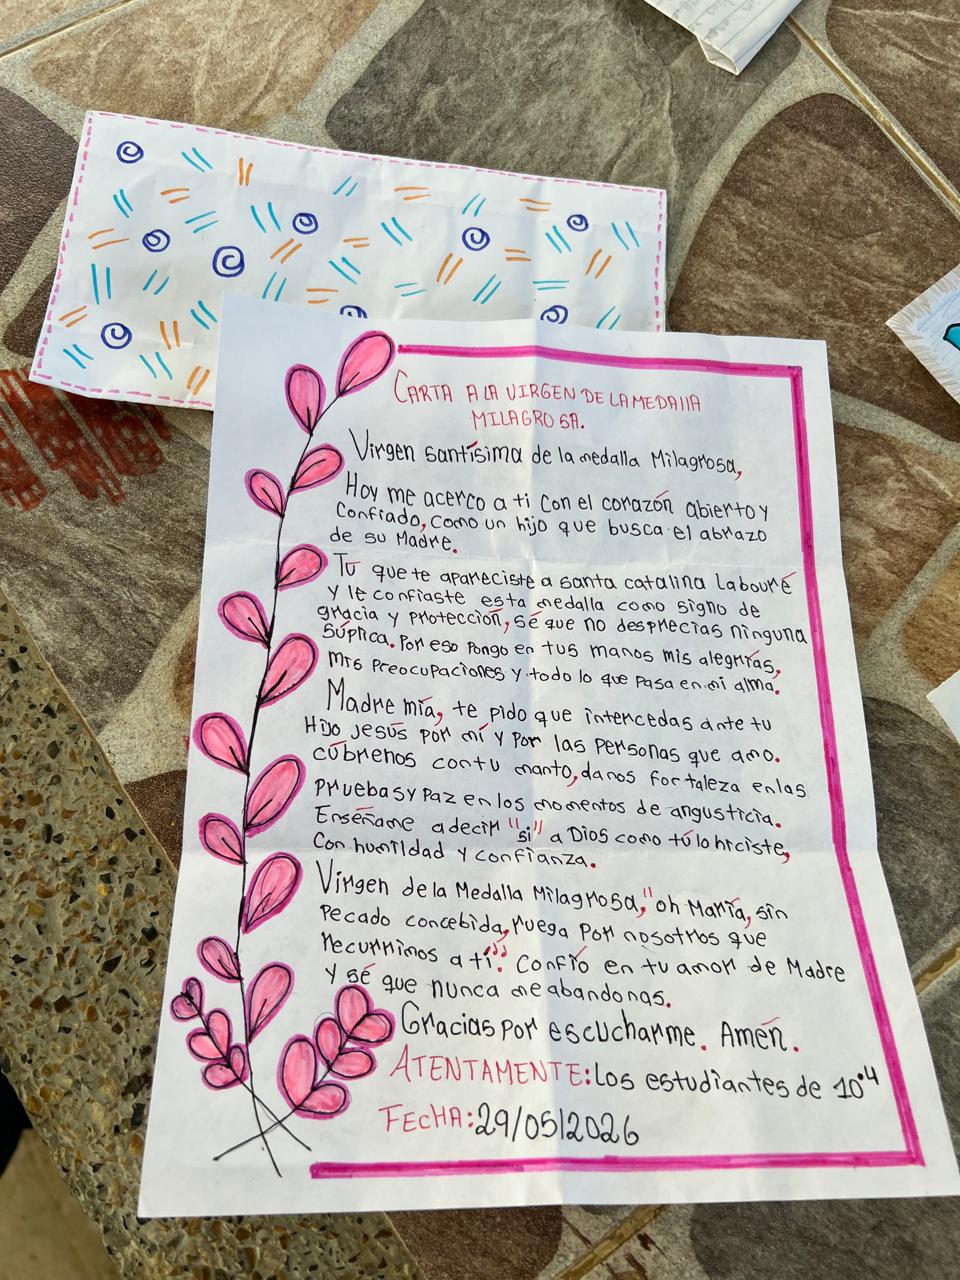 CARTA A LA VIRGEN DE LA MEDALLA
MILAGROSA.
Virgen santísima de la medalla Milagrosa,
Hoy me acerco a ti con el corazón abierto y
confiado, como un hijo que busca el abrazo
de su Madre.
Tú que te apareciste a santa catalina Labouré
y le confiaste esta medalla como signo de
gracia y protección, sé que no desprecias ninguna
súplica. Por eso pongo en tus manos mis alegrías,
mis preocupaciones y todo lo que pasa en mi alma.
Madre mía, te pido que intercedas ante tu
Hijo Jesús por mí y por las personas que amo.
cúbrenos con tu manto, danos fortaleza en las
pruebas y paz en los momentos de angusticia.
Enséñame a decir "si" a Dios como tú lo hiciste,
con humildad y confianza.
Virgen de la Medalla Milagrosa, "oh María, sin
pecado concebida, ruega por nosotros que
recurrimos a ti". Confío en tu amor de Madre
y sé que nunca me abandonas.
Gracias por escucharme. Amén.
ATENTAMENTE: Los estudiantes de 10°4
FECHA: 29/05/2026